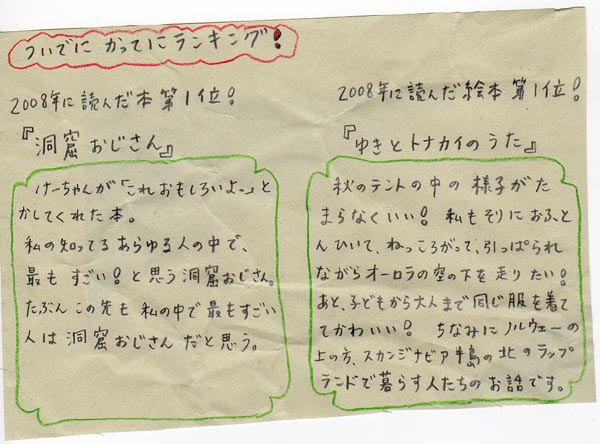 ついでに かってにランキング!
2008年に読んだ本 第1位!
『洞窟 おじさん』
けーちゃんが「これおもしろいよっ」と
かしてくれた本。
私の知ってる あらゆる人の中で、
最も すごい!と思う洞窟おじさん。
たぶん この先も 私の中で最もすごい
人は 洞窟 おじさん だと思う。
2008年に読んだ絵本 第1位!
『ゆきとトナカイのうた』
秋のテントの中の 様子がた
まらなくいい! 私もそりに おふと
ん ひいて、ねっころがって、引っぱられ
ながらオーロラの空の下を 走りたい!
あと、子どもから大人まで同じ服を着て
てかわいい! ちなみにノルウェーの
上の方、スカンジナビア半島の北のラップ
ランドで暮らす人たちの お話です。